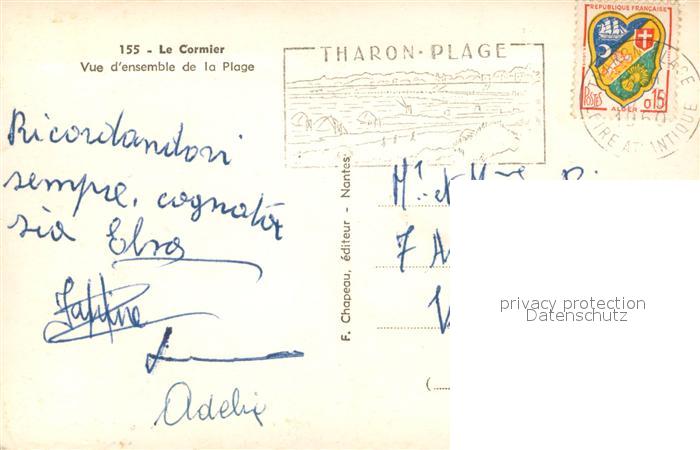 155 - Le Cormier
Vue d'ensemble de la Plage
THARON-PLAGE
REPUBLIQUE FRANÇAISE
POSTES
ALGER
0,15
LOIRE ATLANTIQUE
Ricordandovi
sempre, cognata
zia Elsa
Adelie
F. Chapeau, éditeur - Nantes
Mr et Mme
7 A
V
(...
privacy protection
Datenschutz